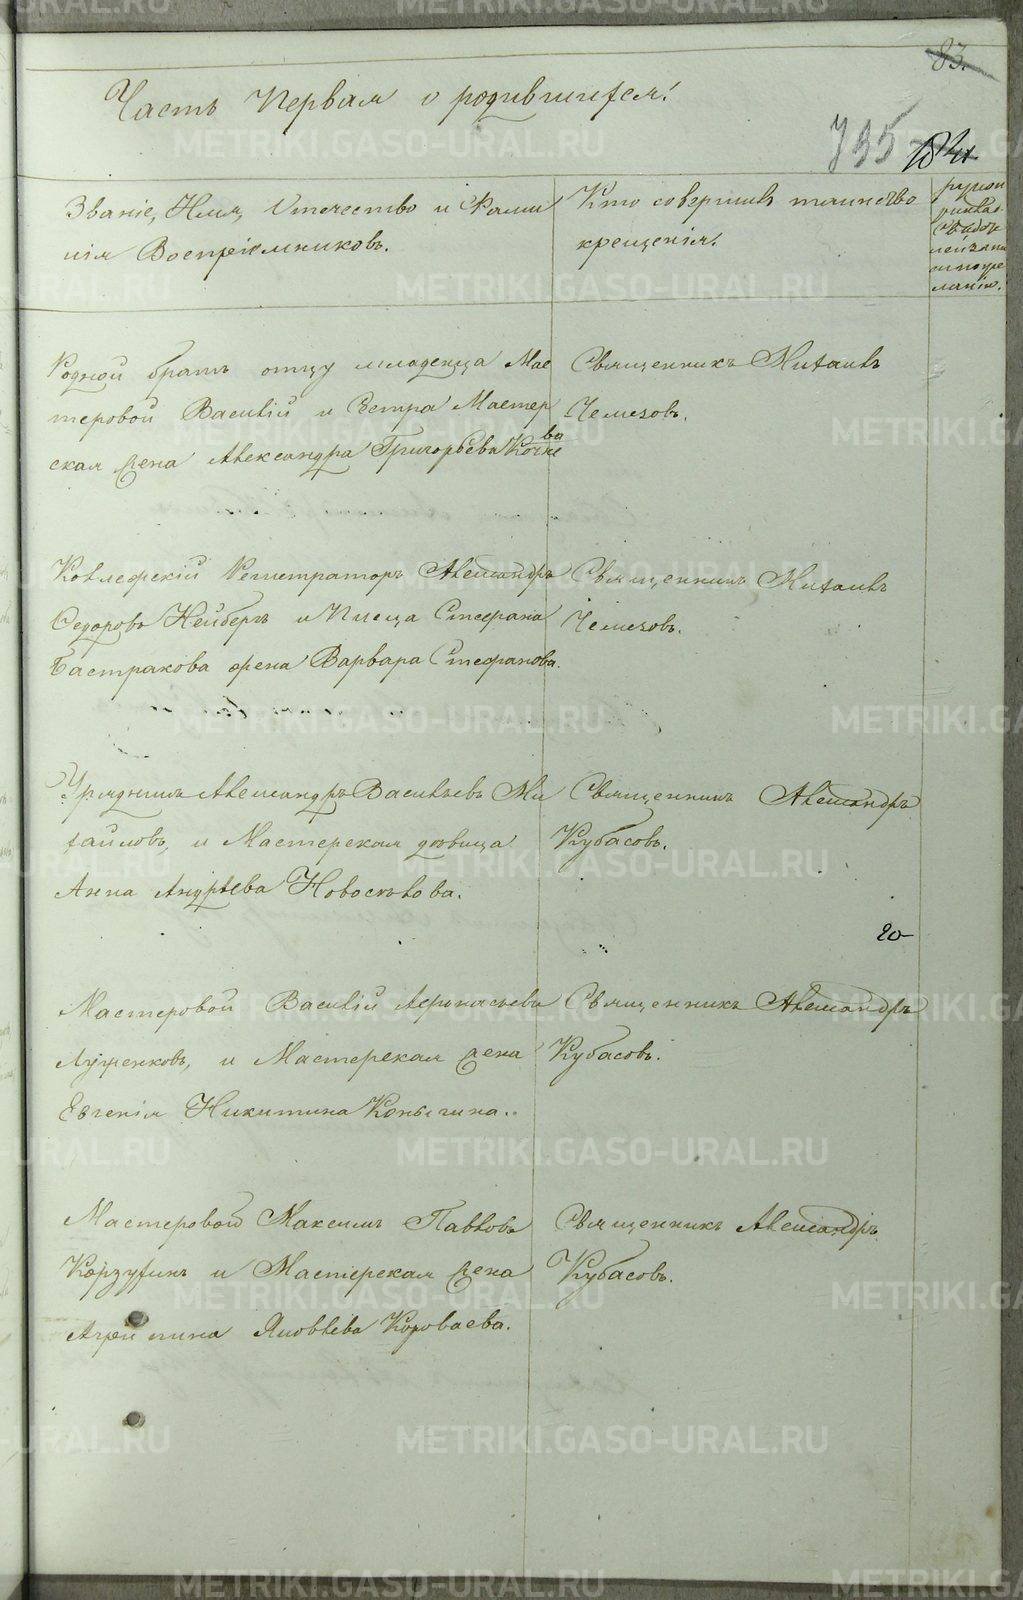 83.
Часть Первая о родившихся!
795
Званіе, Имя, Отечество и Фами
лія Воспріемниковъ.
Кто совершилъ таинство
крещенія.
Родной братъ отцу младенца Мас
теровой Василій и Сестра Мастер
ская жена Александра Григорьева
Священникъ Михаилъ
Чемезовъ.
Коллежскій Регистраторъ Александръ
Федоровъ Нейбергъ и Писца Стефана
Бастракова жена Варвара Стефанова.
Священникъ Михаилъ
Чемезовъ.
Урядникъ Александръ Васильевъ Ми
хайловъ, и Мастерская дѣвица
Анна Андреева Новоселова.
Священникъ Александръ
Кубасовъ.
20
Мастеровой Василій Афонасьевъ
Лушенковъ, и Мастерская жена
Евгенія Никитина Копысина.
Священникъ Александръ
Кубасовъ.
Мастеровой Максимъ Павловъ
Корзухинъ и Мастерская жена
Агрипина Яковлева Короваева.
Священникъ Александръ
Кубасовъ.
METRIKI.GASO-URAL.RU